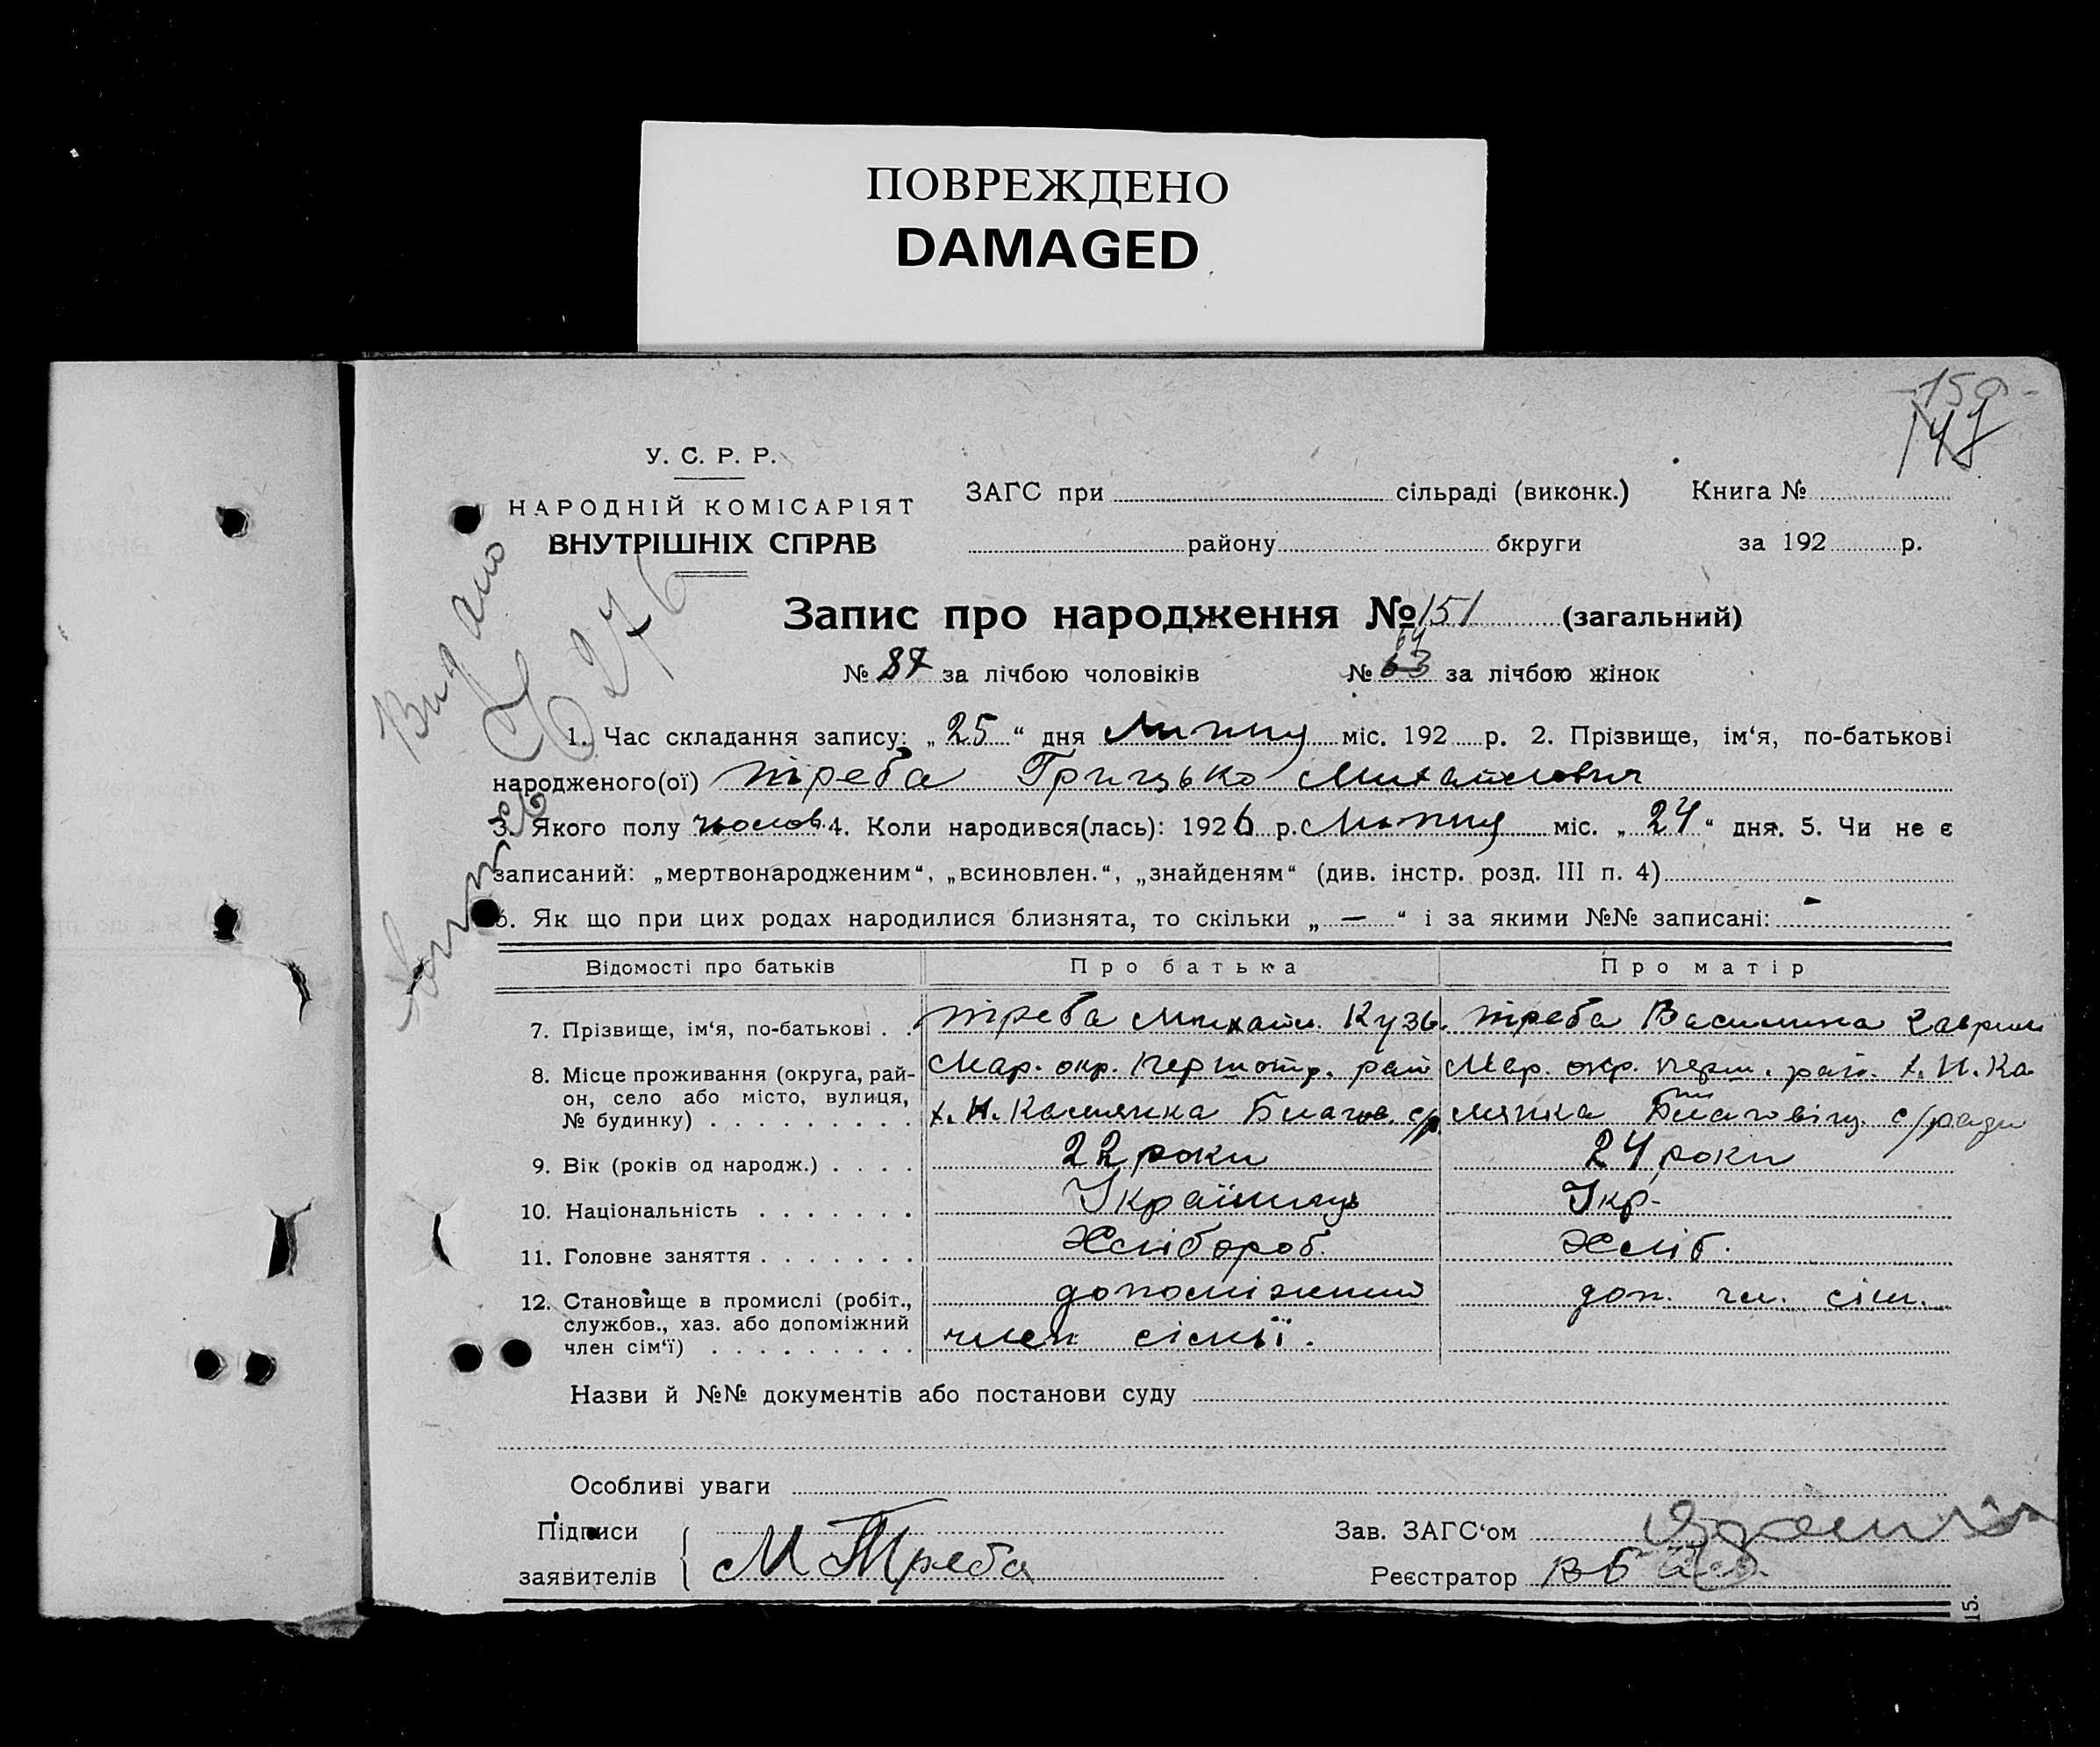 ПОВРЕЖДЕНО
DAMAGED
150
147
У. С. Р. Р.
НАРОДНІЙ КОМІСАРІЯТ
ВНУТРІШНІХ СПРАВ
ЗАГС при сільраді (виконк.) Книга №
району округи за 192 р.
Видано
276
Запис про народження № 151 (загальний)
64
№ 87 за лічбою чоловіків № 63 за лічбою жінок
1. Час складання запису: „25“ дня Липцу міс. 192 р. 2. Прізвище, ім‘я, по-батькові
народженого(ої) Треба Грицько Михайлович
3. Якого полу чолов. 4. Коли народився(лась): 1926 р. Липцу міс. „24“ дня. 5. Чи не є
записаний: „мертвонародженим“, „всиновлен.“, „знайденям“ (див. інстр. розд. III п. 4)
6. Як що при цих родах народилися близнята, то скільки „—“ і за якими №№ записані: -
Відомості про батьків Про батька Про матір
7. Прізвище, ім‘я, по-батькові . . Треба Михайл. Кузь. Треба Василина Гаврил
8. Місце проживання (округа, рай- Мар. окр. Першотр. рай Мар. окр. перш. рай. х. Н. Ка
он, село або місто, вулиця, х. Н. Калмянка Благов. с/р. мянка Благовіщ. с/ради
№ будинку) . . . . . . . . .
9. Вік (років од народж.) . . . . 22 роки 24 роки
10. Національність . . . . . . . Українець Укр.
11. Головне заняття . . . . . . . Хлібороб. Хліб.
12. Становище в промислі (робіт., допоміжний доп. чл. сім.
службов., хаз. або допоміжний
член сім‘ї) . . . . . . . . . член сімьї.
Назви й №№ документів або постанови суду
Особливі уваги
Підписи Зав. ЗАГС‘ом
заявителів М Треба Реєстратор
15.